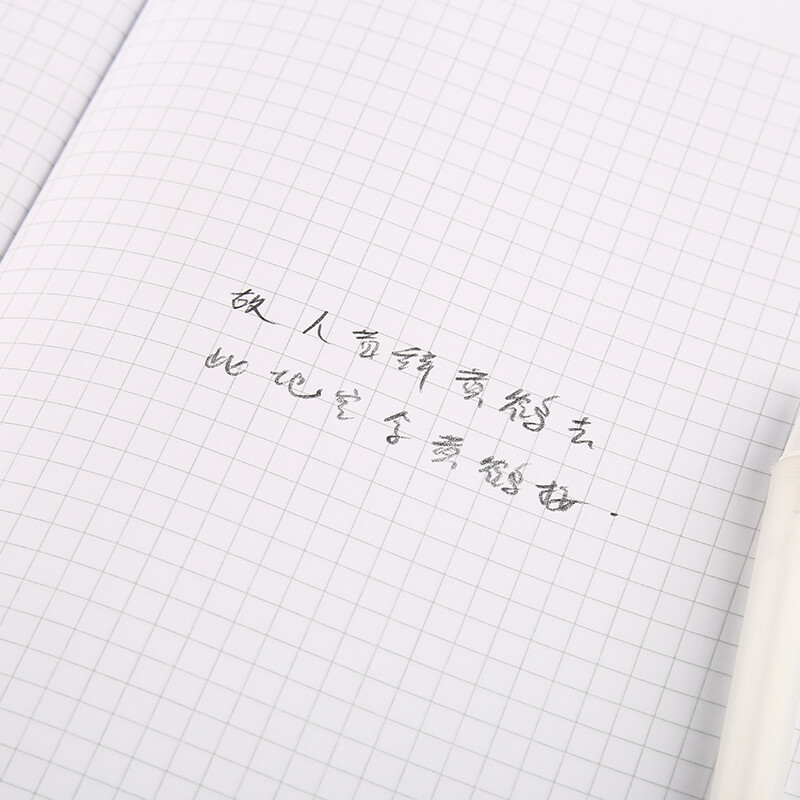 故人黄鹤去
此地空余黄鹤楼.